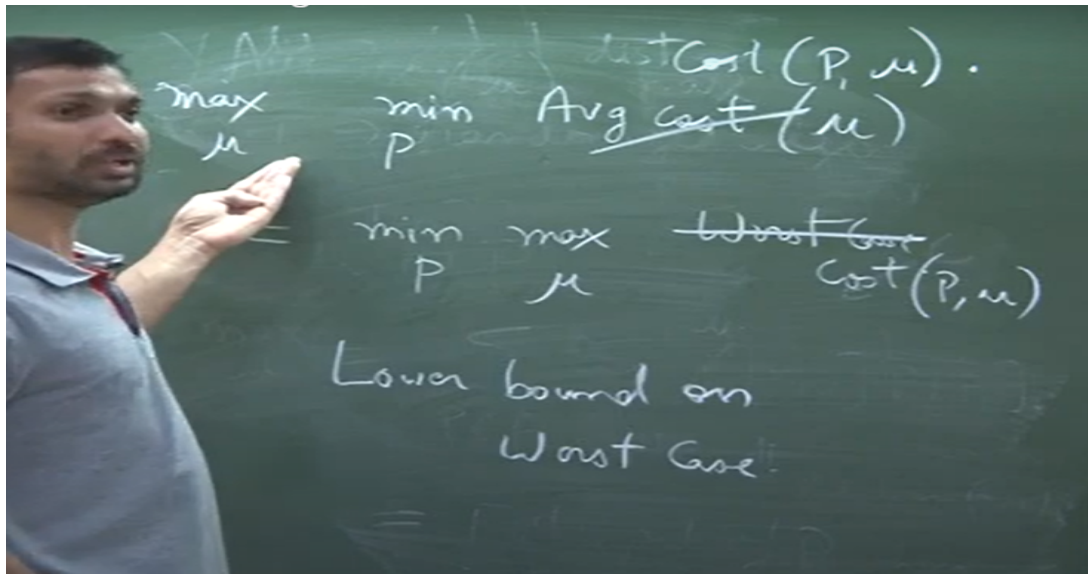 dist Cost (P, μ).
max min Avg cost (μ)
μ P
= min max Worst Case
P μ Cost (P, μ)
Lower bound on
Worst Case